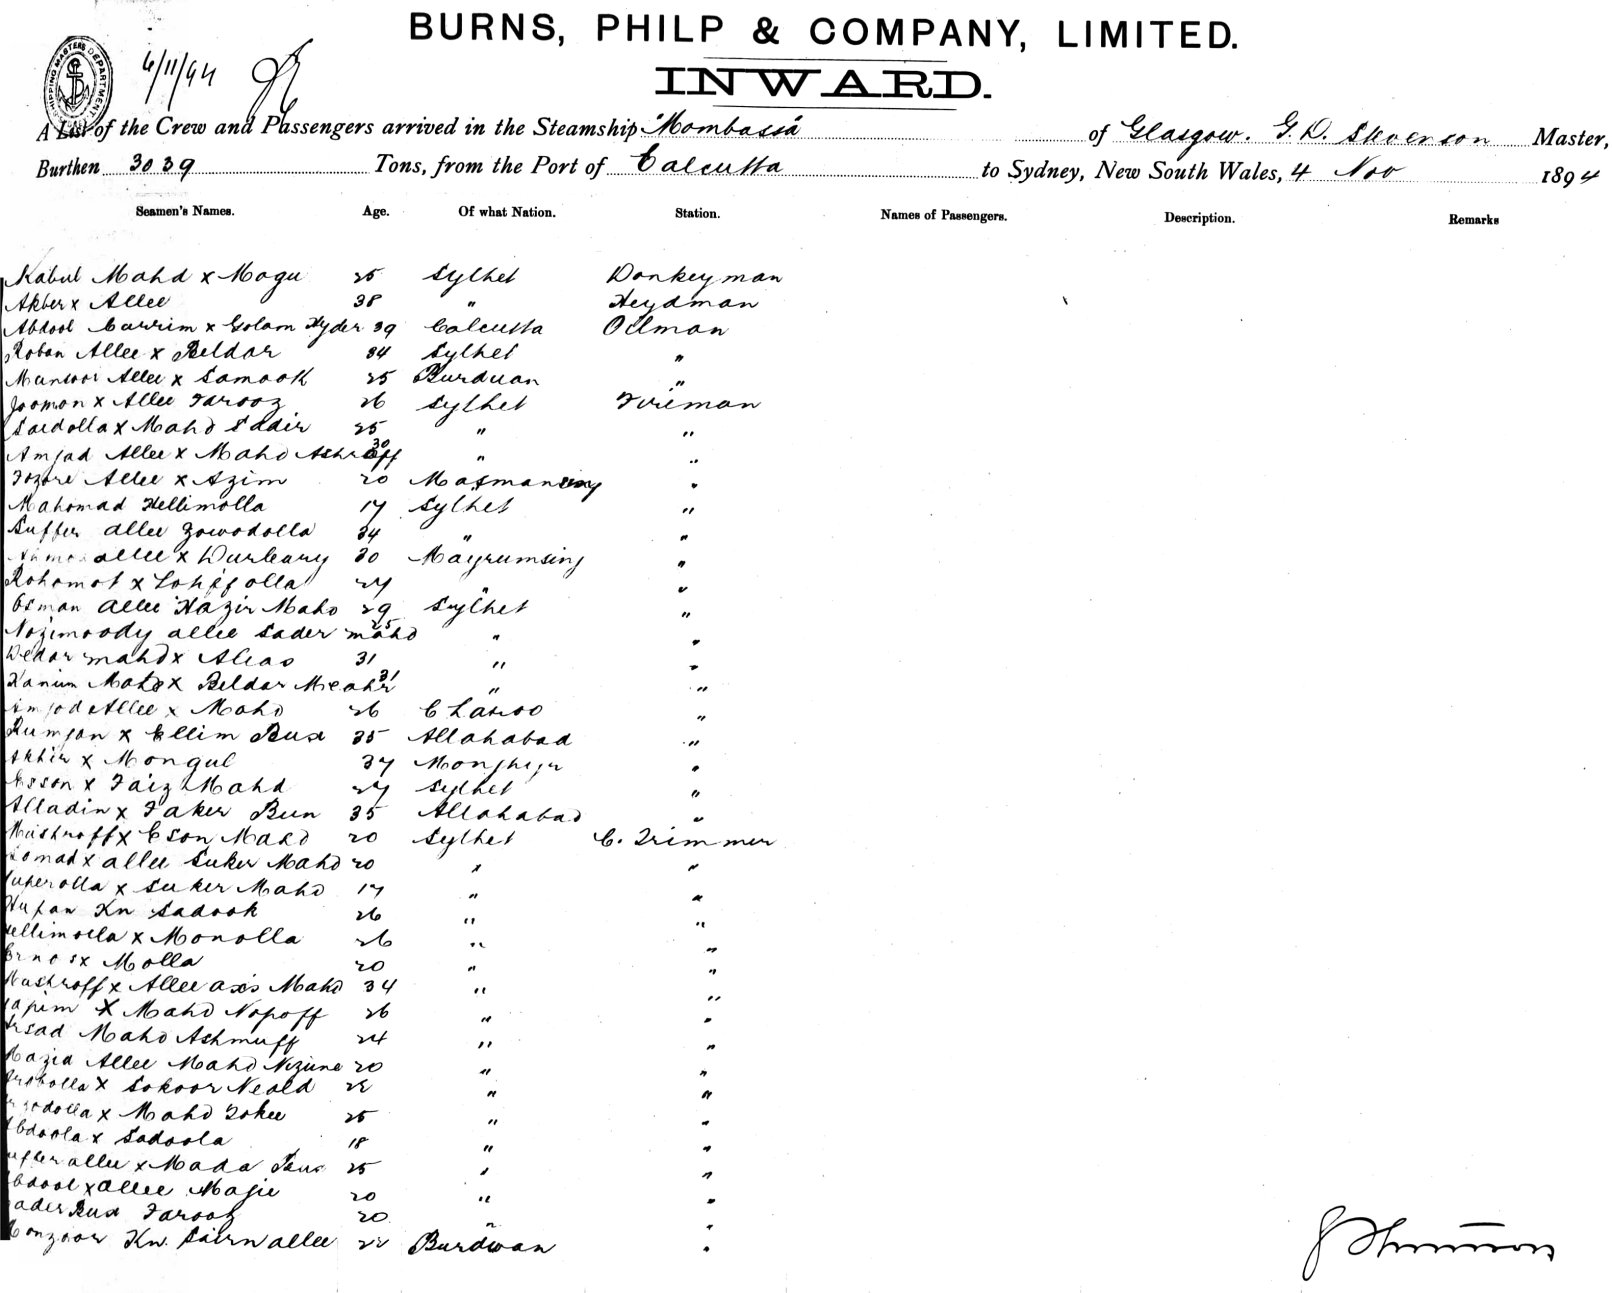 BURNS, PHILP & COMPANY, LIMITED.
INWARD.
SHIPPING MASTERS DEPARTMENT
6/11/94
A List of the Crew and Passengers arrived in the Steamship "Mombassa" of Glasgow. G. D. Stevenson Master,
Burthen 3039 Tons, from the Port of Calcutta to Sydney, New South Wales, 4 Nov 1894
Seamen's Names. Age. Of what Nation. Station. Names of Passengers. Description. Remarks
Kabul Mahd x Mogu 25 Sylhet Donkeyman
Akber x Allee 38 " Heydman
Abdool Carrim x Golam Hyder 39 Calcutta Oilman
Roban Allee x Beldar 34 Sylhet "
Munsoor Allee x Samook 25 Burduan "
Joomon x Allee Farooz 26 Sylhet Fireman
Saidolla x Mahd Sadir 25 " "
Amjad Allee x Mahd Ashraff 30 " "
Fozore Allee x Azim 20 "
Mahomad Hellimolla 17 Sylhet "
Suffer allee Zowodolla 34 " "
allee x Durbary 30 Mayrumsing "
Rohomot x 27 " "
Osman allee Hazir Mahd 29 Sylhet "
Nozimoody allee Sader mahd 25 " "
Dedar mahd x Aleao 31 " "
Hanim Mahd x Beldar 31 " "
Amjod Allee x Mahd 26 "
Rumjan x Ellim Bux 35 Allahabad "
Akbir x Mongul 37 Monghyr "
Esson x Faiz Mahd 27 Sylhet "
Alladin x Faker Bun 35 Allahabad "
Mushroff x Eson Mahd 20 Sylhet C. Trimmer
x allee Suker Mahd 20 " "
x Suker Mahd 17 " "
Kn Sadook 26 " "
x Monolla 26 " "
x Molla 20 " "
Mushroff x Allee Mahd 34 " "
x Mahd Nopoff 26 " "
Mahd Ashmuff 24 " "
Allee Mahd 20 " "
x Sokoor 22 " "
x Mahd 25 " "
Abdoola x Sadoola 18 " "
allee x Mada Bux 25 " "
Abdool x allee Majie 20 " "
Kader Bux Farooz 20 " "
Monzoor Kn. allee 22 Burdwan "